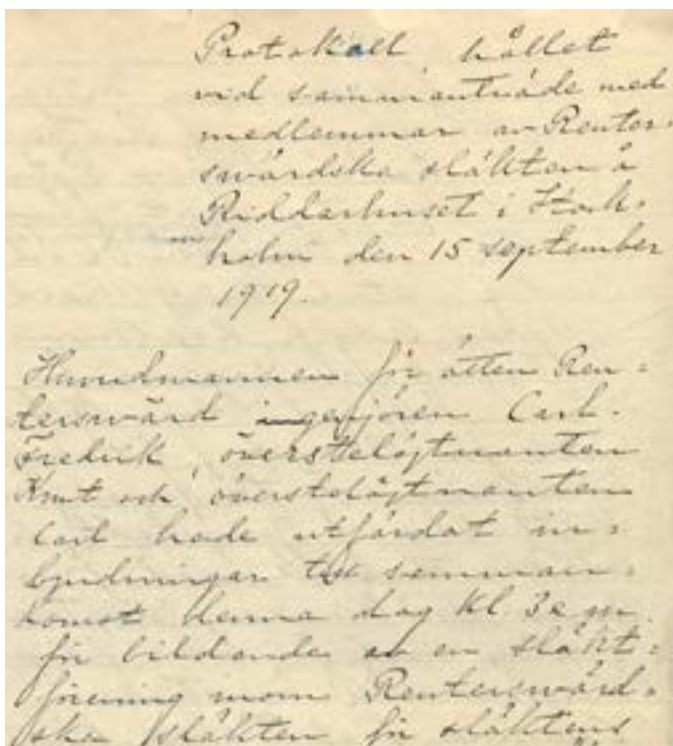 Protokoll, hållet
vid sammanträde med
medlemmar av Reuter-
swärdska släkten å
Riddarhuset i Stock-
holm den 15 september
1919.
Huvudmannen för ätten Reu-
terswärd ingenjören Carl-
Fredrik, överstelöjtnanten
Knut och överstelöjtnanten
Carl hade utfärdat in-
bjudningar till samman-
komst denna dag kl. 3 e m
för bildande av en släkt-
förening inom Reuterswärd-
ska släkten för släktens